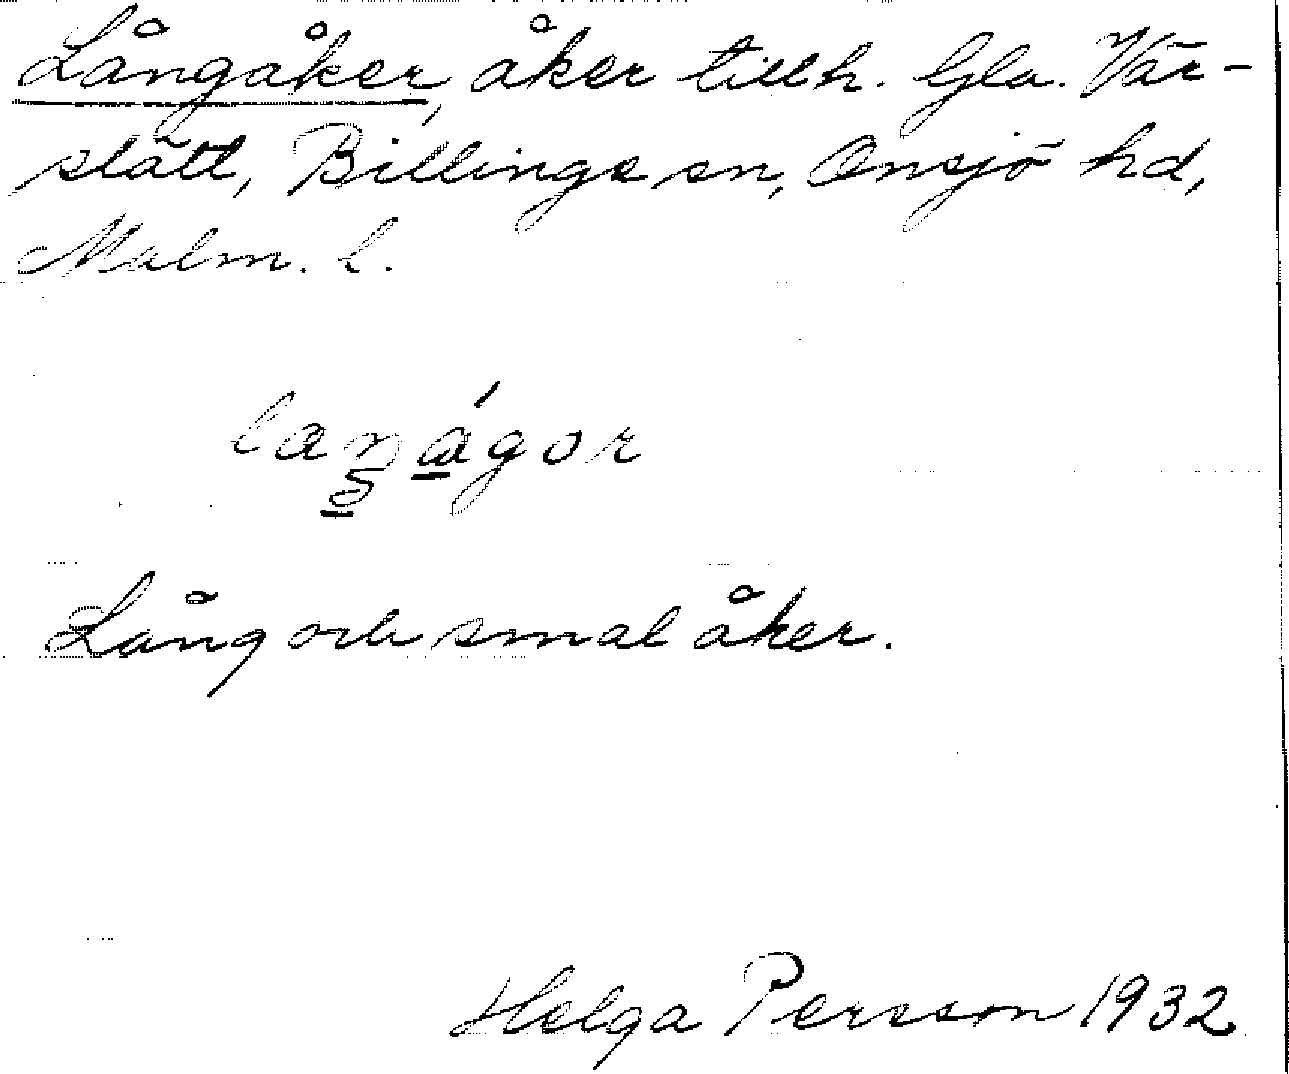 Långåker, åker tillh. Gla. Vär-
slätt, Billinge sn, Onsjö hd,
Malm. l.
Lång och smal åker.
Helga Persson 1932